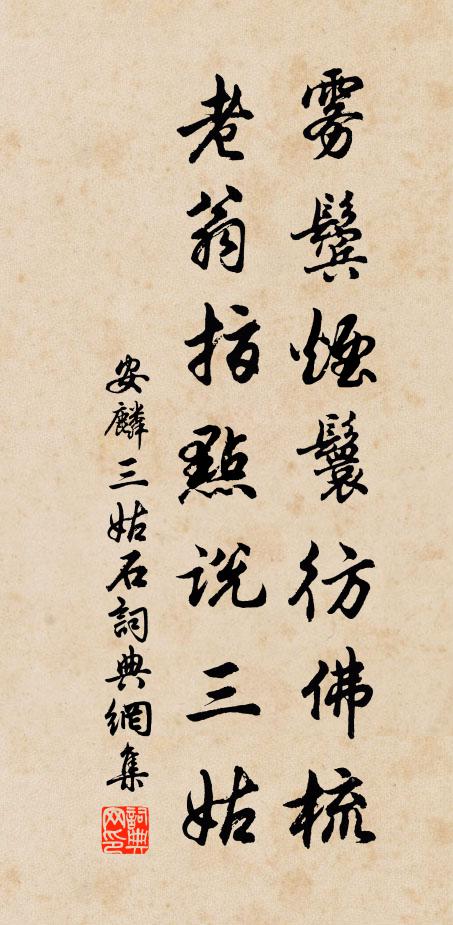 雾鬓煙鬟彷佛梳
老翁指點说三姑
安麟三姑石詞典網集
詞典网印